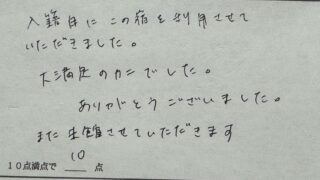 入籍日にこの宿を利用させて
いただきました。
大満足のカニでした。
ありがとうございました。
また来館させていただきます
10
10点満点で ___ 点